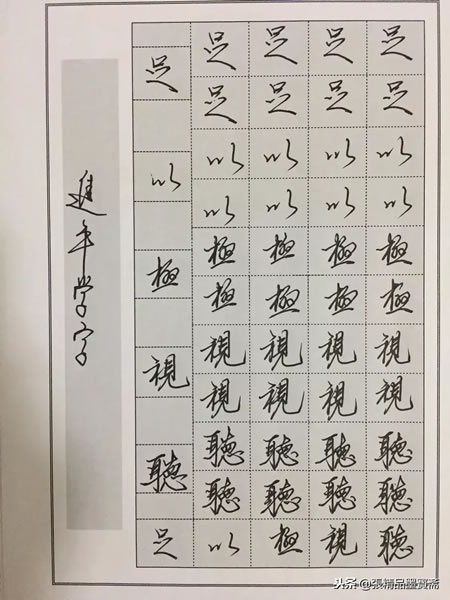 足 足 足 足 足
足 足 足 足
以 以 以 以 以
以 以 以 以
極 極 極 極 極
極 極 極 極
視 視 視 視 視
視 視 視 視
聽 聽 聽 聽 聽
聽 聽 聽 聽
足 以 極 視 聽
進 学字
头条 @張精品墨寶斋